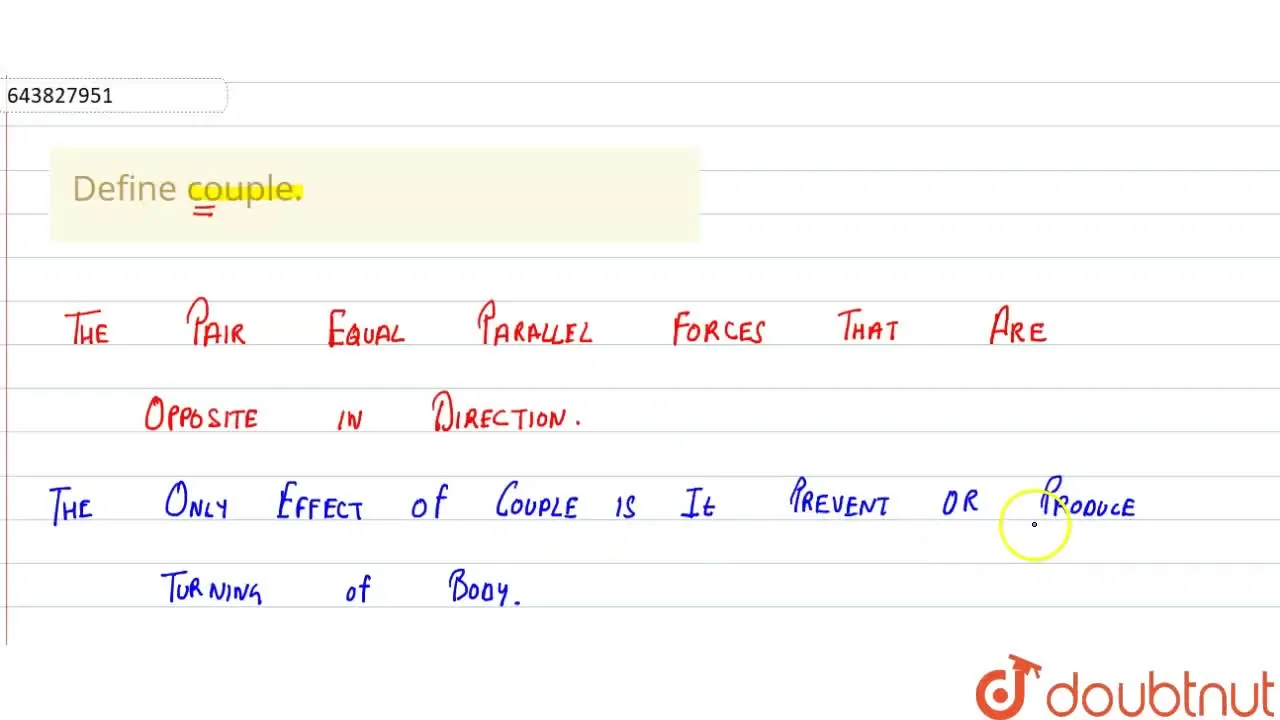 643827951
Define couple.
THE PAIR EQUAL PARALLEL FORCES THAT ARE
OPPOSITE IN DIRECTION.
THE ONLY EFFECT of COUPLE IS It PREVENT OR PRODUCE
TURNING of BODY.
doubtnut